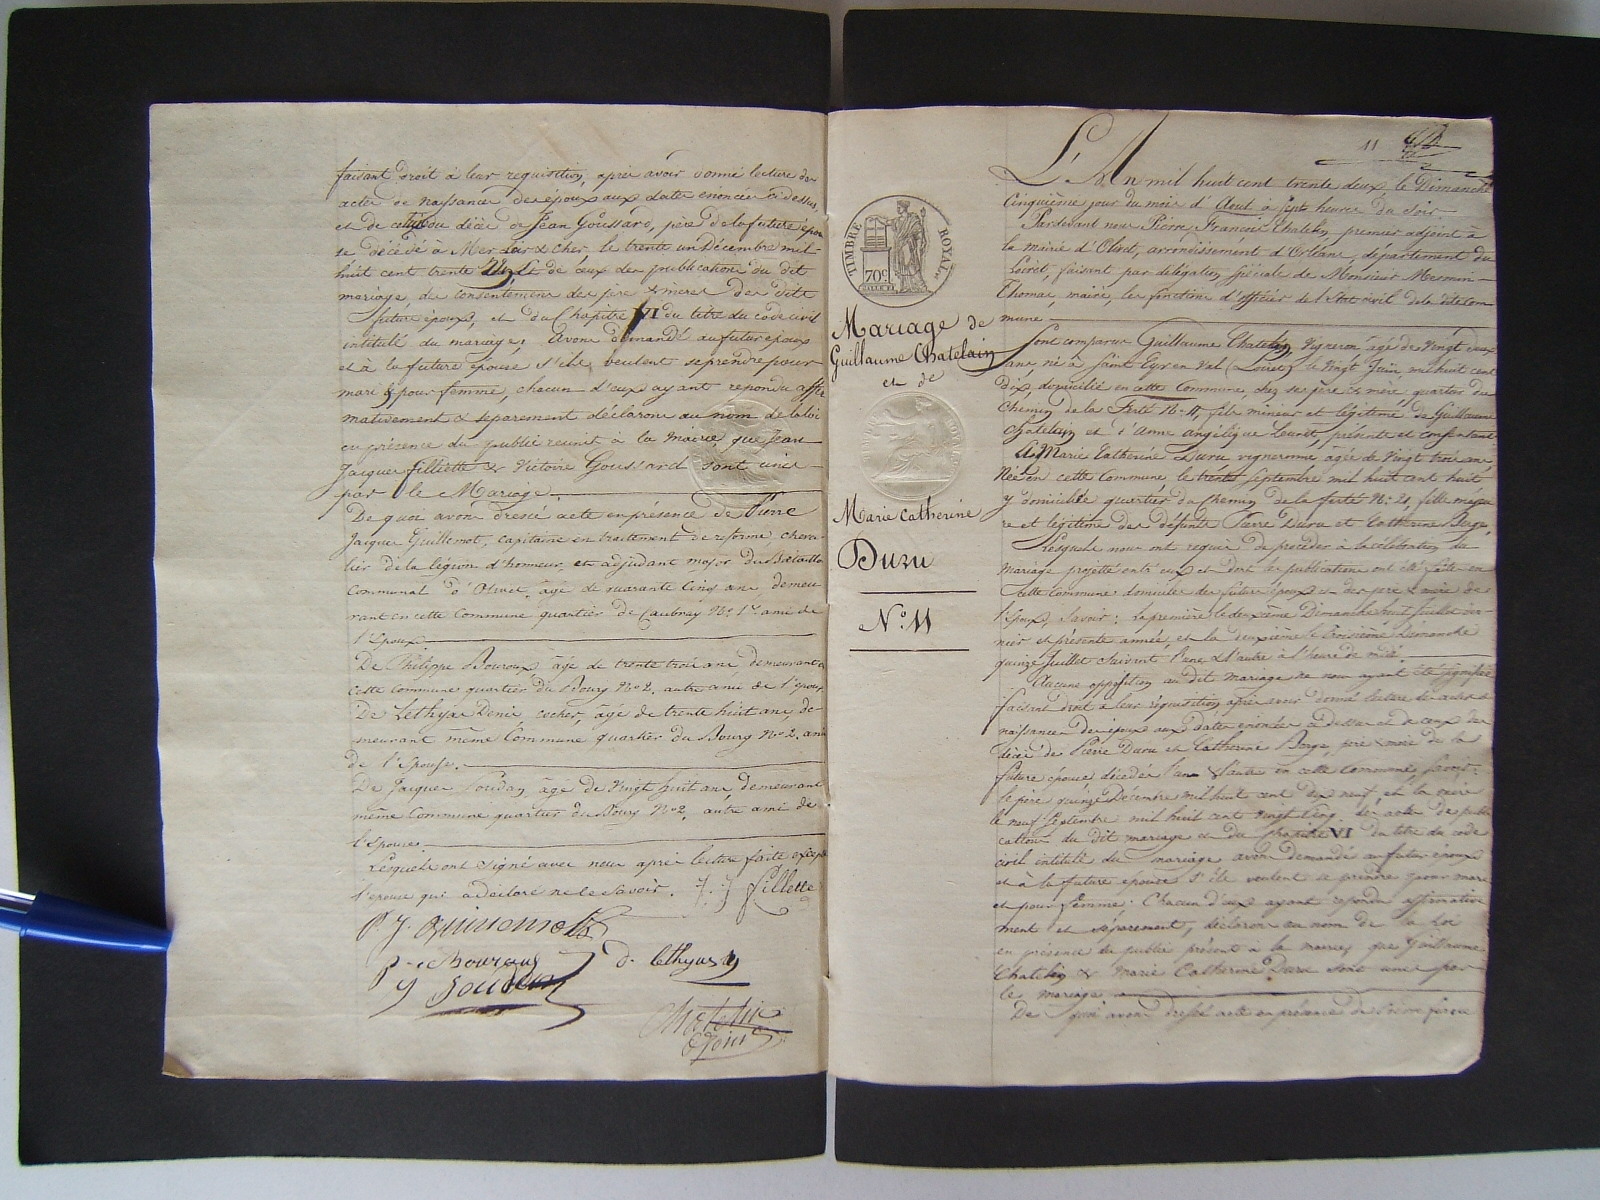 faisant droit à leur requisition, après avoir donné lecture des
actes de naissance des époux aux dates énoncées ci dessus,
et de celui du décès de Jean Goussard, père de la future épou
se décédé à Mer Loir & cher, le trente un Décembre mil
huit cent trente de ceux des publications du dit
mariage, du consentement des père & mères des dits
futurs époux, et du Chapitre VI du titre du code civil
intitulé du mariage; Avons demandé au futur époux
et à la future épouse s'ils veulent se prendre pour
mari & pour femme, chacun d'eux ayant répondu affir
mativement & séparement déclarons au nom de la loi
en présence du public réunit à la Mairie, que Jean
Jacques filliette & Victoire Goussard sont unis
par le Mariage.
De quoi avons dressé acte en présence de Pierre
Jacques Guillemot, capitaine en traitement de réforme cheva-
lier de la légion d'honneur, et adjudant major du Bataillon
Communal d'Olivet, âgé de quarante Cinq ans, demeu
rant en cette Commune quartier de Caubray No. 1er ami de
l'Epoux
De Philippe Bouroux, âgé de trente trois ans demeurant
cette commune quartier du Bourg No 2. autre ami de l'époux
De Lethyas Denis, cocher, âgé de trente huit ans, de-
meurant même Commune quartier du Bourg No 2. ami
de l'Epouse.
De Jacques Soudan, âgé de Vingt huit ans demeurant
même Commune quartier du Bourg No 2, autre ami de
l'épouse.
Lesquels ont signé avec nous après lecture faite excepté
l'épouse qui a déclaré ne le savoir. J. J fillette
P J. Guillemot
P. Bouroux d. lethyas
J Soudan
Chatelin
adjoint
11
TIMBRE ROYAL
70c.
Mariage de
Guillaume Chatelain
et de
Marie Catherine
Duru
No. 11
L'An mil huit cent trente deux, le Dimanche
Cinquième jour du mois d'Aout à sept heures du soir
Pardevant nous Pierre François Chatelin, premier adjoint à
la mairie d'Olivet, arrondissement d'Orléans, département du
Loiret, faisant par délégation spéciale de Monsieur Mesmin
Thomas, maire, les fonctions d'officier de l'Etat civil de la dite com
mune
Sont comparus Guillaume Chatelin, Vigneron âgé de Vingt deux
ans, né à Saint Cyr en Val (Loiret) le Vingt Juin mil huit cent
dix, domicilié en cette Commune, chez ses père & mère, quartier du
Chemin de la Ferté No. 11, fils mineur et légitime de Guillaume
Chatelain et d'Anne angélique Leuret, présents et consentant
& Marie Catherine Duru vigneronne agée de Vingt trois ans
Née en cette Commune le trente septembre mil huit cent huit
y domiciliée quartier du chemin de la ferté No. 21, fille majeu
re et légitime des défunts Pierre Duru et Catherine Berge,
Lesquels nous ont requis de procéder à la célébration du
mariage projetté entre eux et dont les publications ont été faites en
cette Commune domicile des futurs époux et des père & mère de
l'Epoux, savoir: la première le deuxième Dimanche huit Juillet der-
nier et présente année, et la deuxième le troisième Dimanche
quinze Juillet suivant l'une & l'autre à l'heure de midi.
Aucune opposition au dit mariage ne nous ayant été signifiée
faisant droit à leur réquisition après avoir donné lecture des actes de
naissance des époux aux dates énoncées ci Dessus et de ceux des
décès de Pierre Duru et Catherine Berge, père & mère de la
future épouse décédés l'un & l'autre en cette Commune, savoir:
le père quinze Décembre mil huit cent dix neuf et la mère
le neuf Septembre mil huit cent Vingt Cinq. des actes de publi
cations du dit mariage et du Chapitre VI du titre du code
civil intitulé du mariage avons demandé au futur époux
et à la future épouse s'ils veulent se prendre pour mari
et pour femme: Chacun d'eux ayant répondu affirmative
ment et séparement, déclarons au nom de la Loi
en présence du public présent à la mairie, que Guillaume
Chatelin & Marie Catherine Duru sont unis par
le mariage
De quoi avons dressé acte en présence de